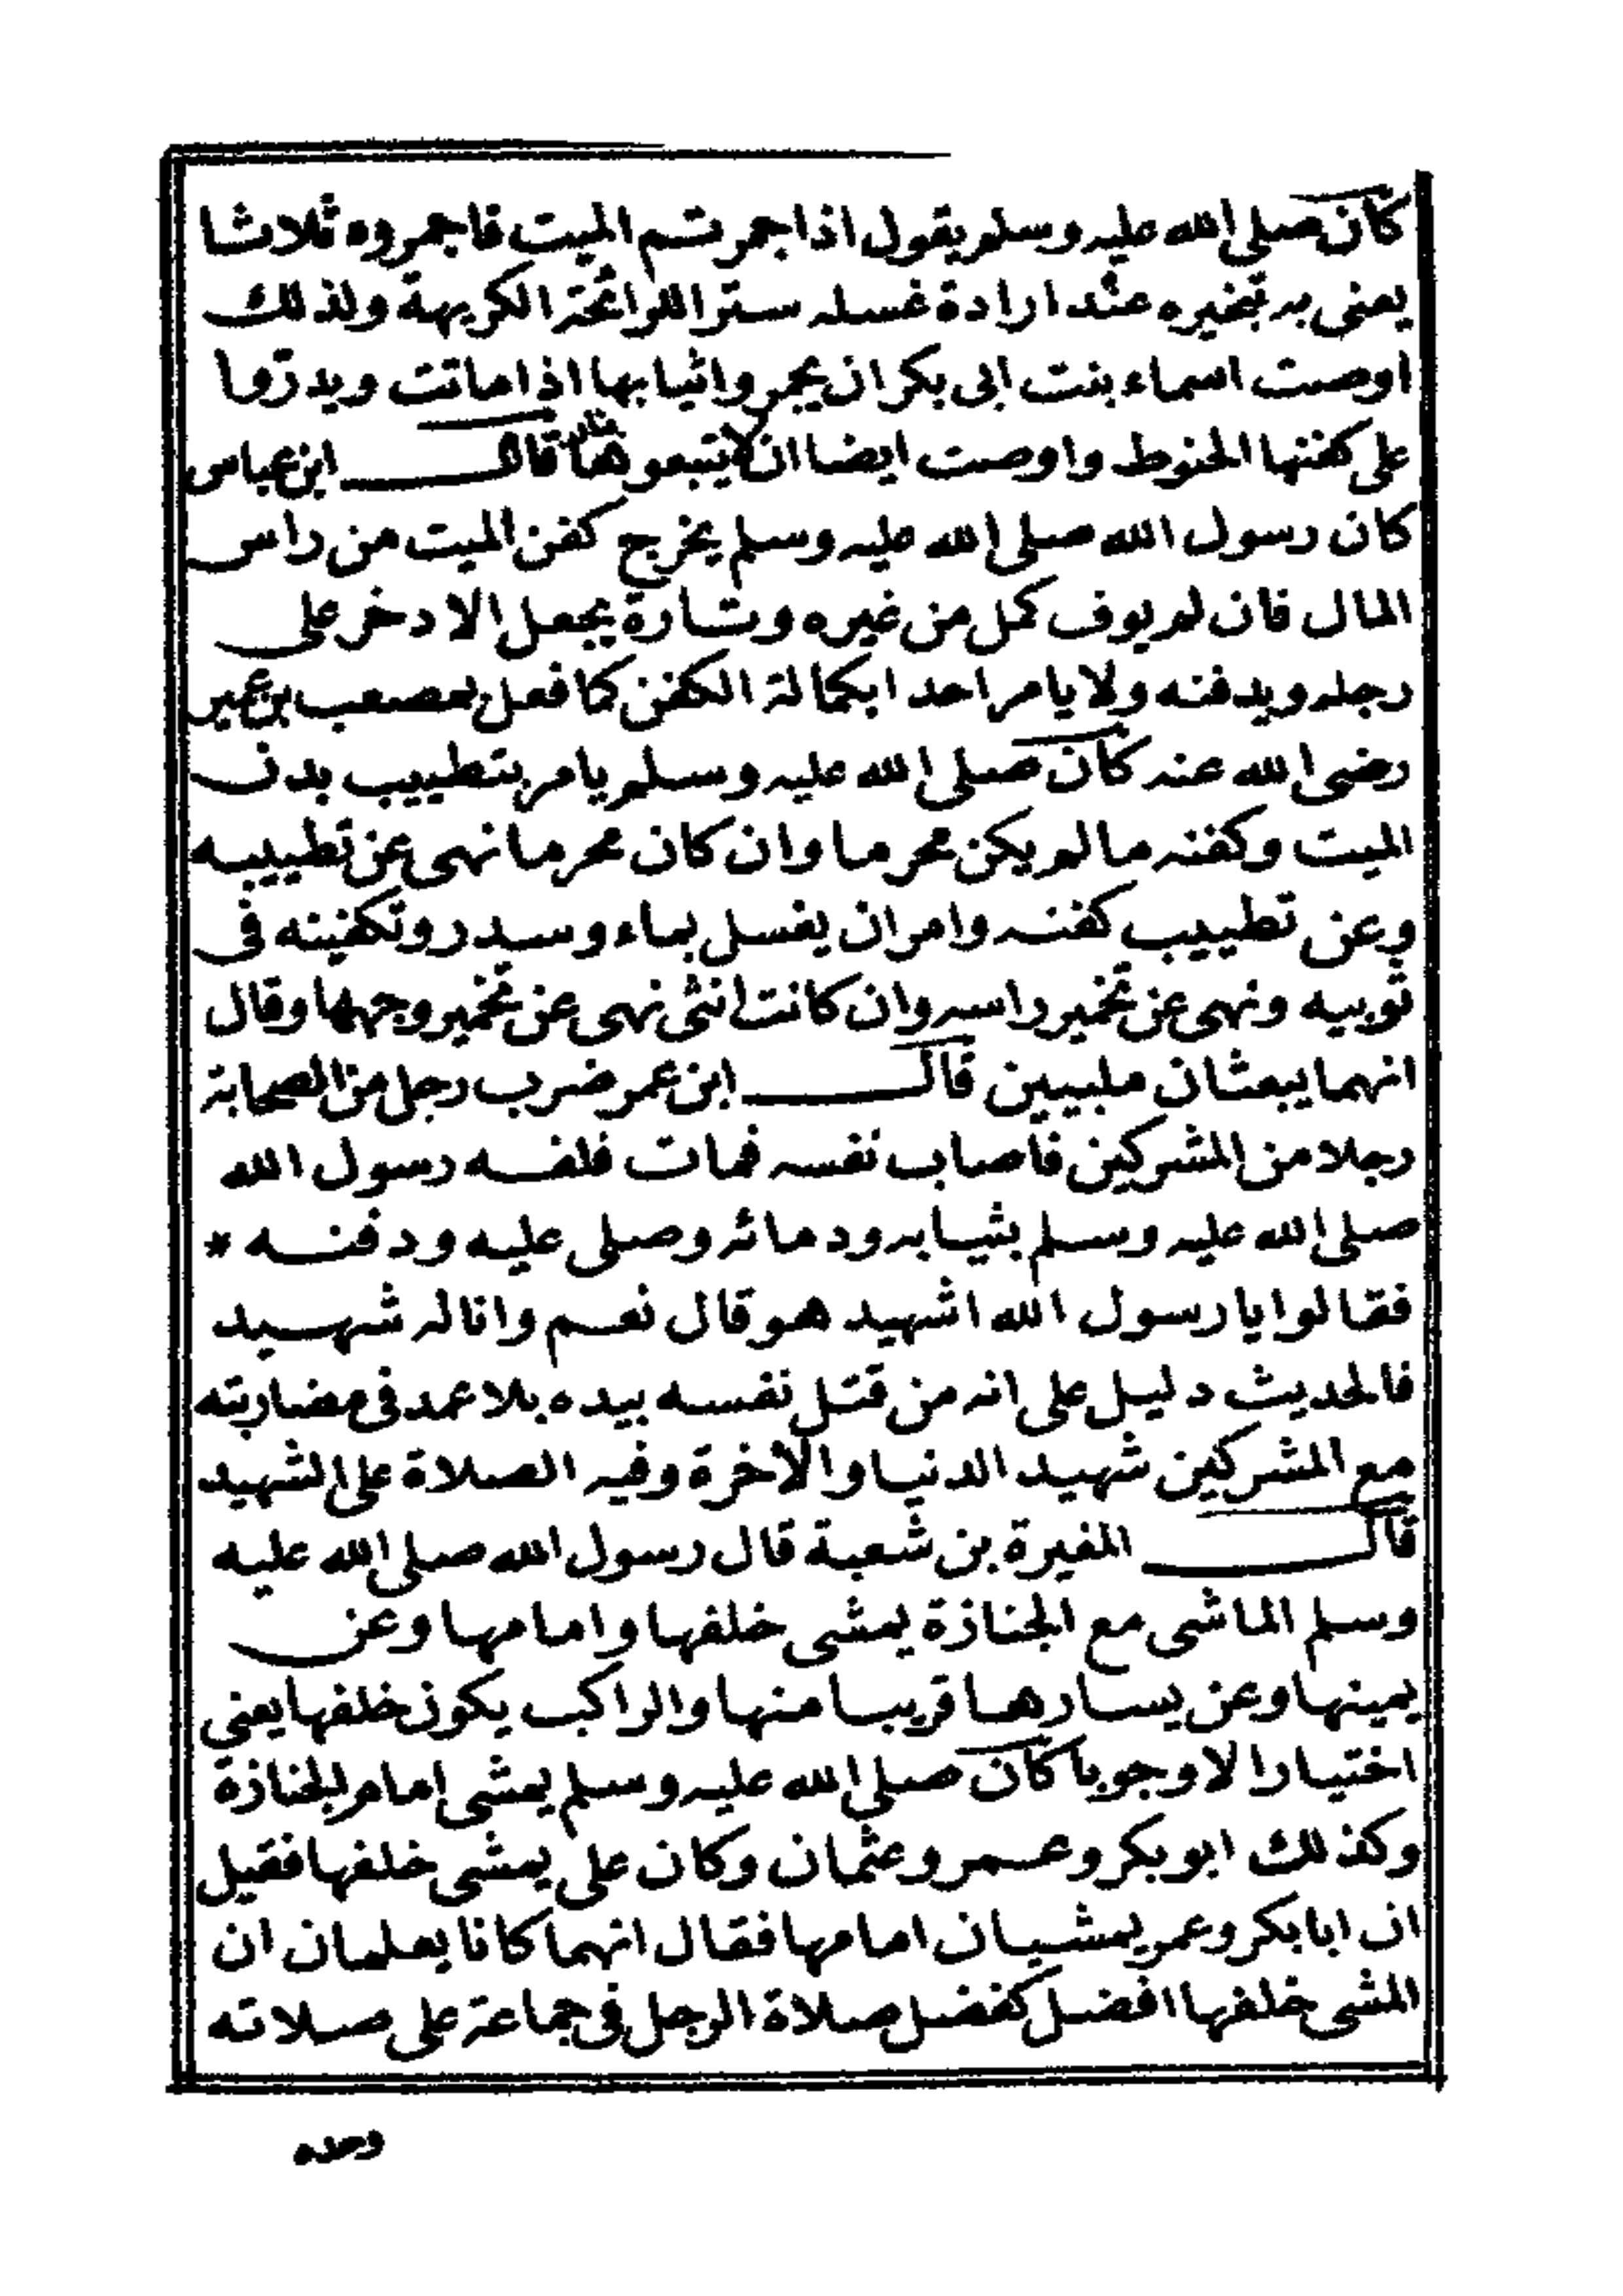 كان صلى الله عليه وسلم يقول اذا اجمرتم الميت فاجمروه ثلاثا
يعنى به تبخيره عند ارادة غسله سترا للرائحة الكريهة ولذلك
اوصت اسماء بنت ابى بكر ان يجمروا ثيابها اذا ماتت ويذروا
على كفنها الحنوط واوصت ايضا ان لا يتبعوها بنار قال ابن عباس
كان رسول الله صلى الله عليه وسلم يخرج كفن الميت من راس
المال فان لم يوف كمل من غيره وتارة يجعل الادخر على
رجله ويدفنه ولا يامر احدا بكمالة الكفن كما فعل بمصعب بن عمير
رضى الله عنه كان صلى الله عليه وسلم يامر بتطييب بدن
الميت وكفنه ما لم يكن محرما وان كان محرما نهى عن تطييبه
وعن تطييب كفنه وامر ان يغسل بماء وسدر وتكفينه فى
ثوبيه ونهى عن تخمير راسه وان كانت انثى نهى عن تخمير وجهها وقال
انهما يبعثان ملبيين قال ابن عمر ضرب رجل من الصحابة
رجلا من المشركين فاصاب نفسه فمات فلفه رسول الله
صلى الله عليه وسلم بثيابه ودمائه وصلى عليه ودفنه *
فقالوا يا رسول الله اشهيد هو قال نعم وانا له شهيد
فالحديث دليل على انه من قتل نفسه بيده بلا عمد فى مضاربته
مع المشركين شهيد الدنيا والأخرة وفيه الصلاة على الشهيد
قال المغيرة بن شعبة قال رسول الله صلى الله عليه
وسلم الماشى مع الجنازة يمشى خلفها وامامها وعن
يمينها وعن يسارها قريبا منها والراكب يكون خلفها يعنى
اختيارا لا وجوبا كان صلى الله عليه وسلم يمشى امام الجنازة
وكذلك ابو بكر وعمر وعثمان وكان على يمشى خلفها فقيل
ان ابا بكر وعمر يمشيان امامها فقال انهما كانا يعلمان ان
المشى خلفها افضل كفضل صلاة الرجل فى جماعة على صلاته
وحده